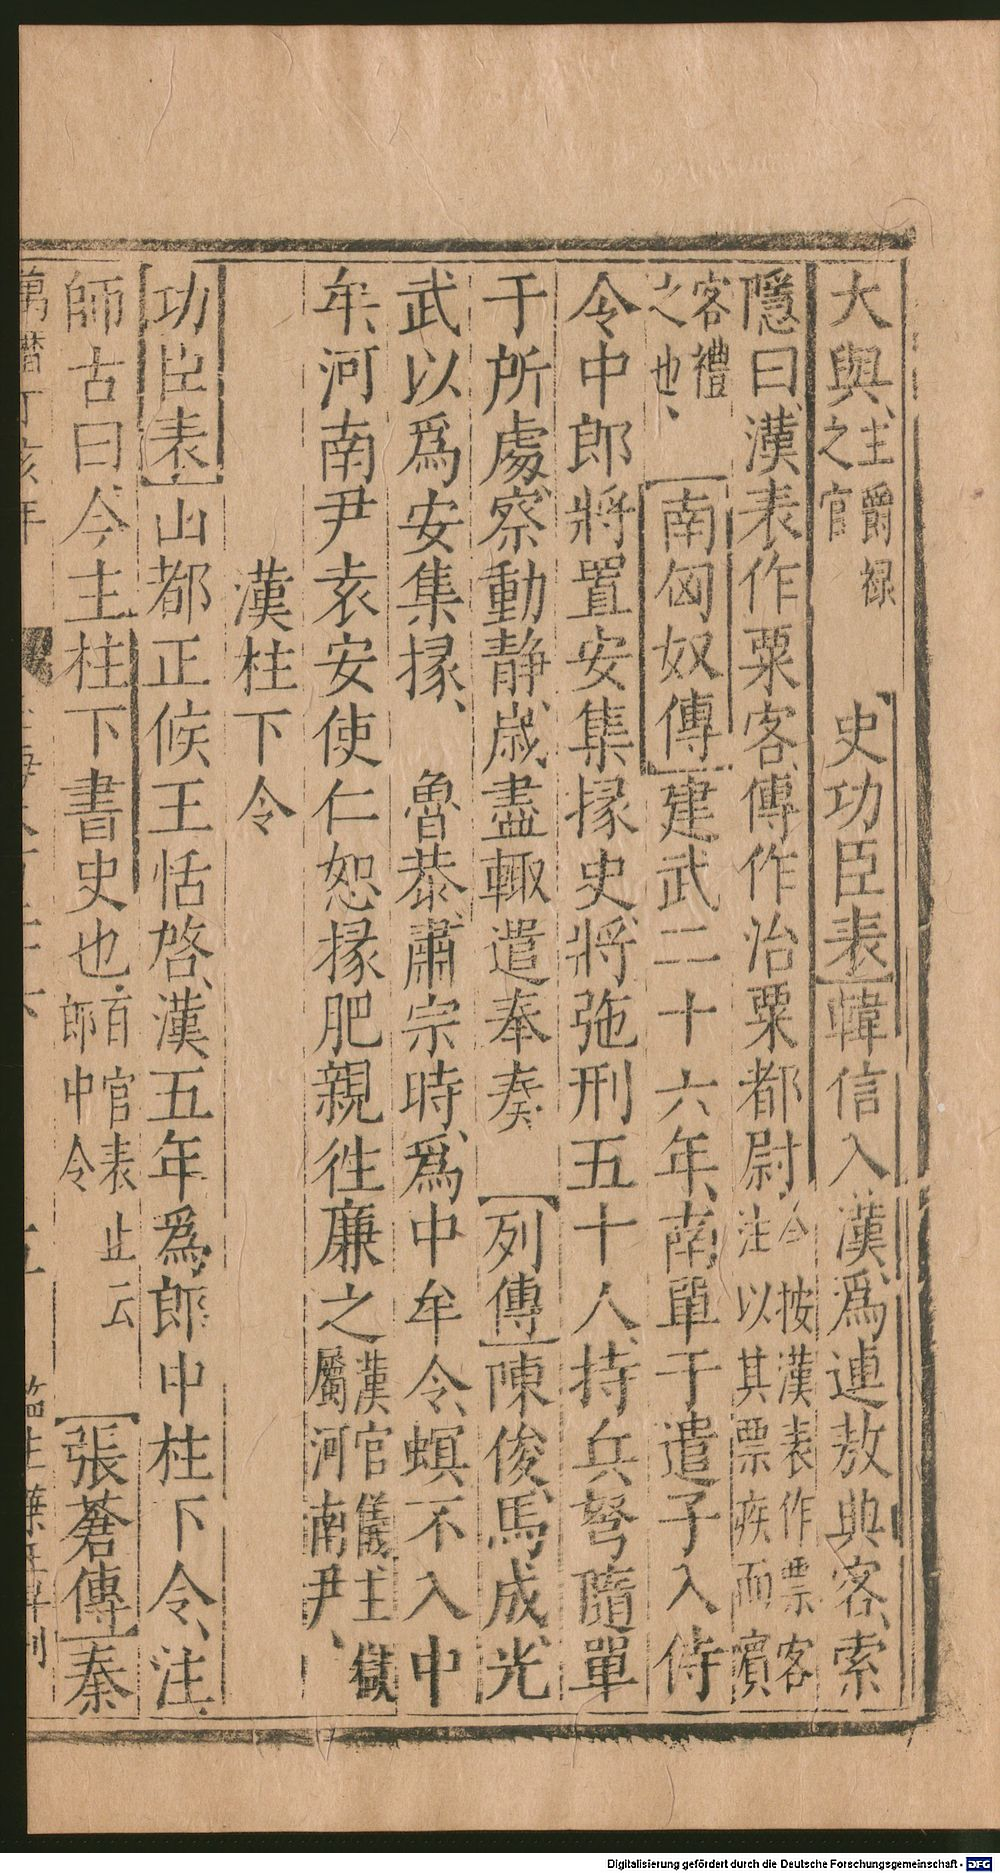 大輿、主爵禄之官 史功臣表韓信入漢爲連敖典客、索
隱曰、漢表作粟客、傳作治粟都尉、今按漢表作票客注以其票疾而賓
客禮之也、 南匈奴傳建武二十六年、南單于遣子入侍
令中郎將置安集掾史、將弛刑五十人、持兵弩隨單
于所處、察動静、歲盡輙遣奉奏 列傳陳俊、馬成、光
武以爲安集掾、 魯恭、肅宗時、爲中牟令、螟不入中
牟、河南尹袁安使仁恕掾肥親徃廉之漢官儀主獄屬河南尹、
漢柱下令
功臣表山都正候王恬啓、漢五年爲郎中柱下令、注、
師古曰、今主柱下書史也、百官表止云郎中令 張蒼傳秦
萬曆丁亥年
刊
Digitalisierung gefördert durch die Deutsche Forschungsgemeinschaft - DFG